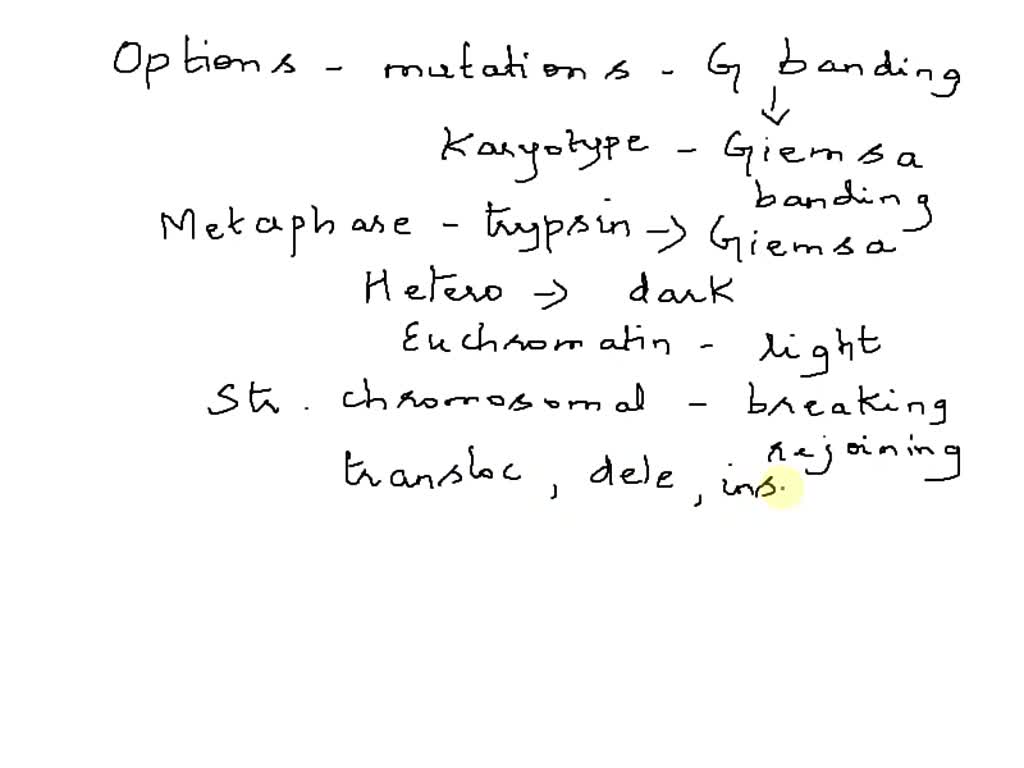 Options - mutations - G banding
↓
Karyotype - Giemsa
banding
Metaphase - trypsin → Giemsa
Hetero → dark
Euchromatin - light
Str. chromosomal - breaking
rejoining
transloc, dele, ins.